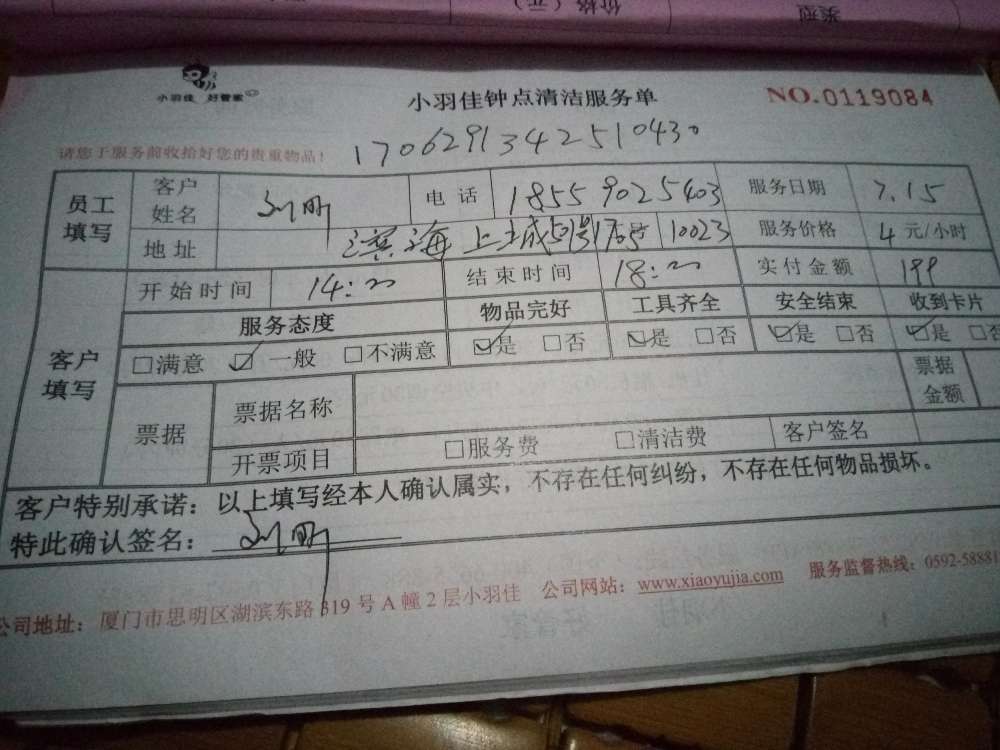 价格（元）
类型
小羽佳 好管家
小羽佳钟点清洁服务单
NO.0119084
请您于服务前收拾好您的贵重物品！
1706291342510430
员工填写
客户姓名
电话 18559025403
服务日期 7.15
地址 滨海上城 10023
服务价格 4 元/小时
客户填写
开始时间 14:00
结束时间 18:00
实付金额 199
服务态度 物品完好 工具齐全 安全结束 收到卡片
□满意 ☑一般 □不满意 ☑是 □否 ☑是 □否 ☑是 □否 ☑是 □否
票据
票据名称
票据金额
开票项目 □服务费 □清洁费 客户签名
客户特别承诺：以上填写经本人确认属实，不存在任何纠纷，不存在任何物品损坏。
特此确认签名：
公司地址：厦门市思明区湖滨东路319号A幢2层小羽佳 公司网站：www.xiaoyujia.com 服务监督热线：0592-58881